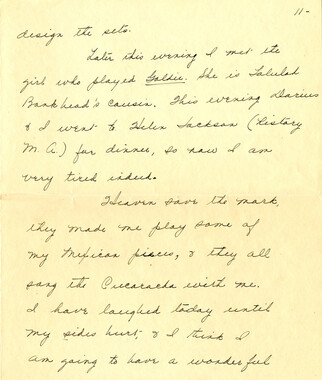 11-
design the sets.
Later this evening I met the
girl who played Goldie. She is Talulah
Bankhead's cousin. This evening Darius
& I went to Helen Jackson (history
M.A.) for dinner, so now I am
very tired indeed.
Heaven save the mark,
they made me play some of
my Mexican pieces, & they all
sang the Cucaracha with me.
I have laughed today until
my sides hurt, & I think I
am going to have a wonderful